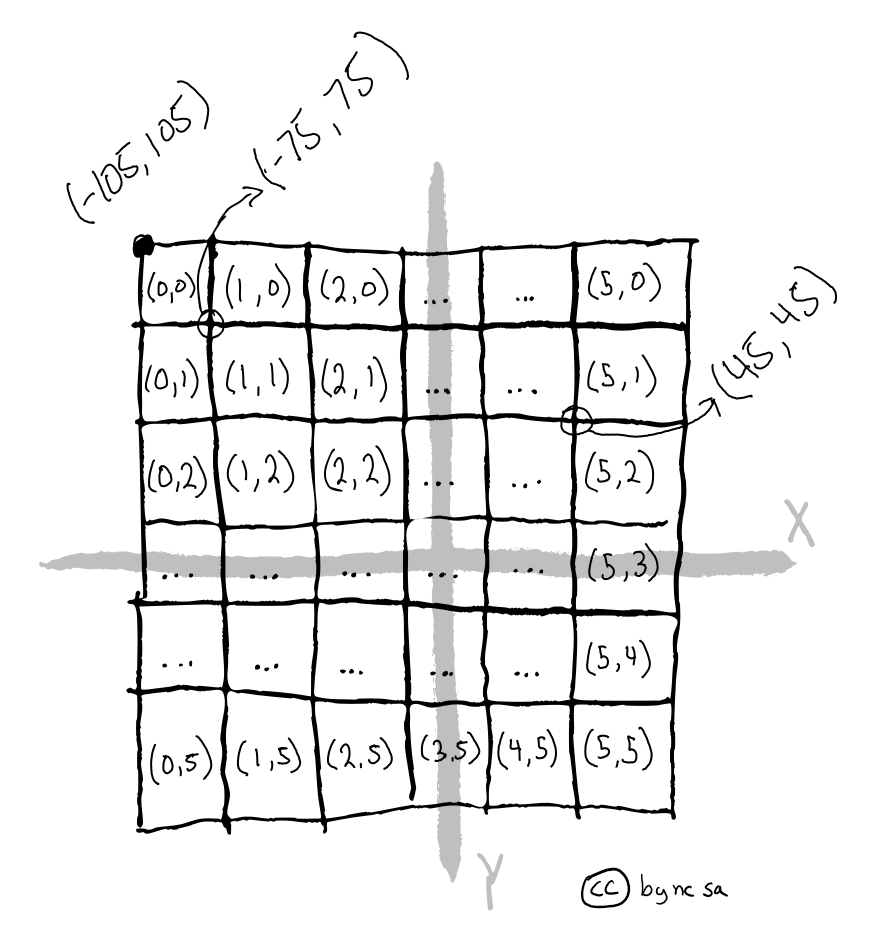 (-105,105)
(-75,75)
(0,0) (1,0) (2,0) ... ... (5,0)
(45,45)
(0,1) (1,1) (2,1) ... ... (5,1)
(0,2) (1,2) (2,2) ... ... (5,2)
X
... ... ... ... ... (5,3)
... ... ... ... ... (5,4)
(0,5) (1,5) (2,5) (3,5) (4,5) (5,5)
Y
cc by nc sa